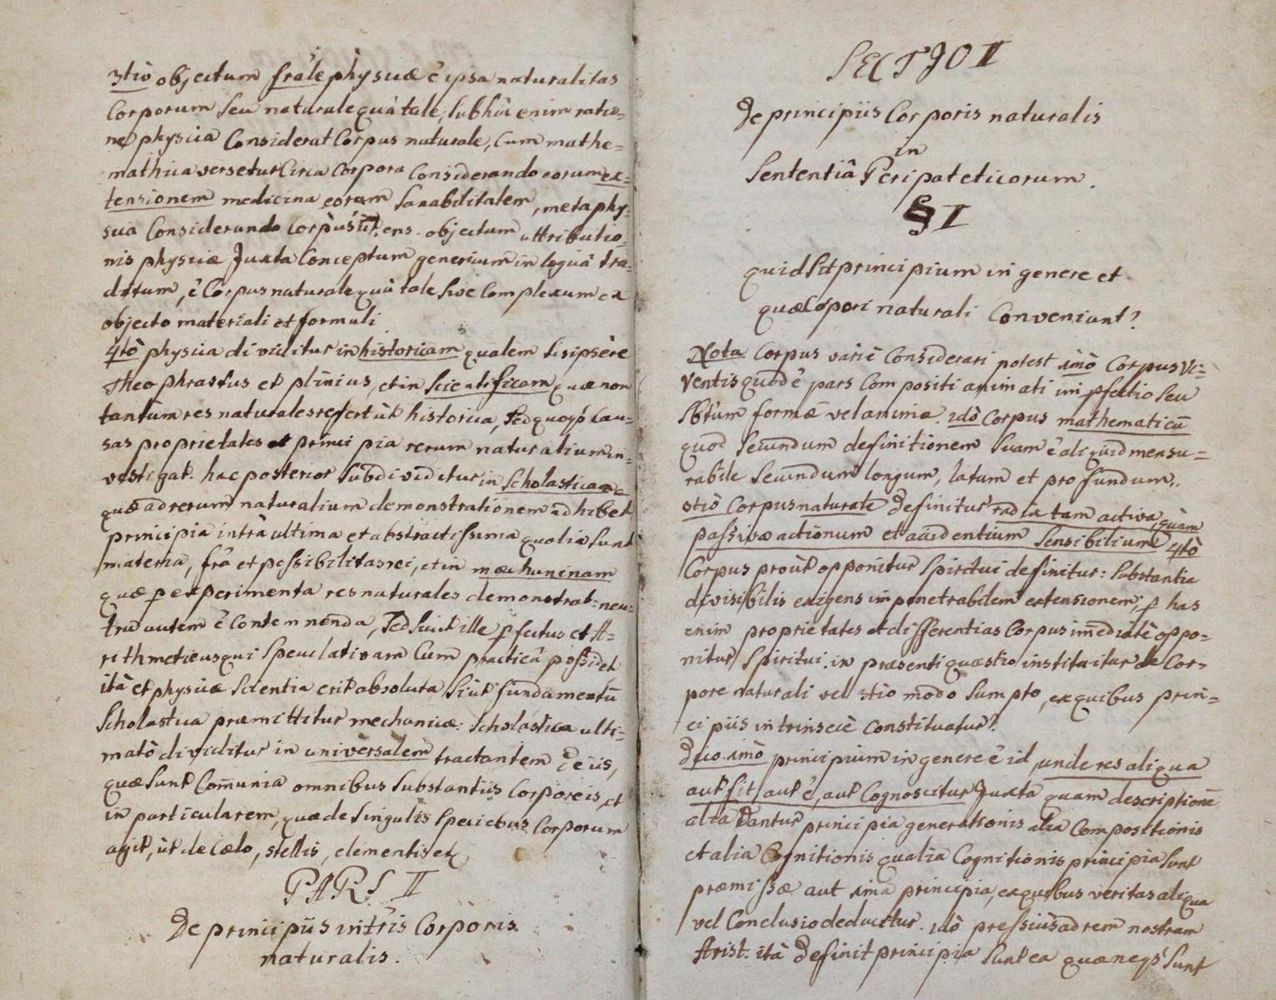 3tiò objectum frãle physicæ ẽ ipsa naturalitas
Corporum seu naturale quà tale, sub hâc enim ratio=
ne physica Considerat Corpus naturale, Cum mathe=
mathica versetur Circa Corpora Considerando eorum ex=
tensionem medicina eorum sanabilitatem, metaphy=
sica Considerando corpùs ùt ens. objectum attributio=
nis physicæ Juxta Conceptum genericum in logicâ tra=
ditum, ẽ Corpus naturale quà tale sive Complexum ex
objecto materiali et formali
4tò physica dividitur in historicam qualem scripsere
Theophrastus et plinius, et in scientificam quæ non
tantùm res naturales refert ùt historica, sed quoq, cau=
sas proprietates et principia rerum naturalium in=
vestigat. hæc posterior subdividitur in scholasticam
quæ ad rerum naturalium demonstrationem adhibet
principia intrà ultima et abstractissima qualia sunt
materia, frã et possibilitas rei, et in mæchanicam
quæ p experimenta res naturales demonstrat: neu=
tra autem ẽ Contemnenda, sed sicut ille pfectus et A=
rithmeticus qui speculativam Cum practicâ possidet
ità et physicæ scientia erit absoluta si ut fundamentũ
scholastica præmittitur mechanicæ. scholastica ulti=
matò dividitur in univèrsalem tractantem de iis,
quæ sunt Com̃unia omnibus substantiis Corporeis, et
in particularem, quæ de singulis speciebus Corporum
agit, ùt de Cœlo, stellis, elementis etc
PARS II
De principiis intris Corporis
naturalis.
SECTIO II
De principiis Corporis naturalis
in
Sententiâ Peripateticorum.
§ I
quid sit principium in genere et
quæ Copori naturali Conveniant?
Nota Corpus variè Considerari potest 1mò Corpus vi=
ventis quod ẽ pars Compositi animati impfectio seu
sbtum formæ vel animæ. 2dò Corpus mathematicũ
quod secundum definitionem suam ẽ aliquid mensu=
rabile secundum longum, latum et profundum.
3tiò Corpus naturale definitur radix tam activa quàm
passivæ actionum et accidentium sensibilium 4tò
Corpus proùt opponitur spiritui definitur: substantia
divisibilis exigens impenetrabilem extensionem, p has
enim proprietates et differentias Corpus im̃ediatè oppo=
nitur spiritui. in præsenti quæstio instituitur de Cor=
pore naturali vel 3tio modo sumpto, ex quibus prin=
cipiis intrinsecè Constituatur?
Dico 1mò principium in genere ẽ id, unde res aliqua
aut fit, aut ẽ, aut Cognoscitur Juxta quam descriptionẽ
alia dantur principia generationis alia Compositionis
et alia Cognitionis qualia Cognitionis principia sunt
præmissæ aut 1ma principia, ex quibus veritas aliqua
vel Conclusio deducitur. 2dò pressius ad rem nostram
Arist. ità definit principia sunt ea quæ neq, sunt